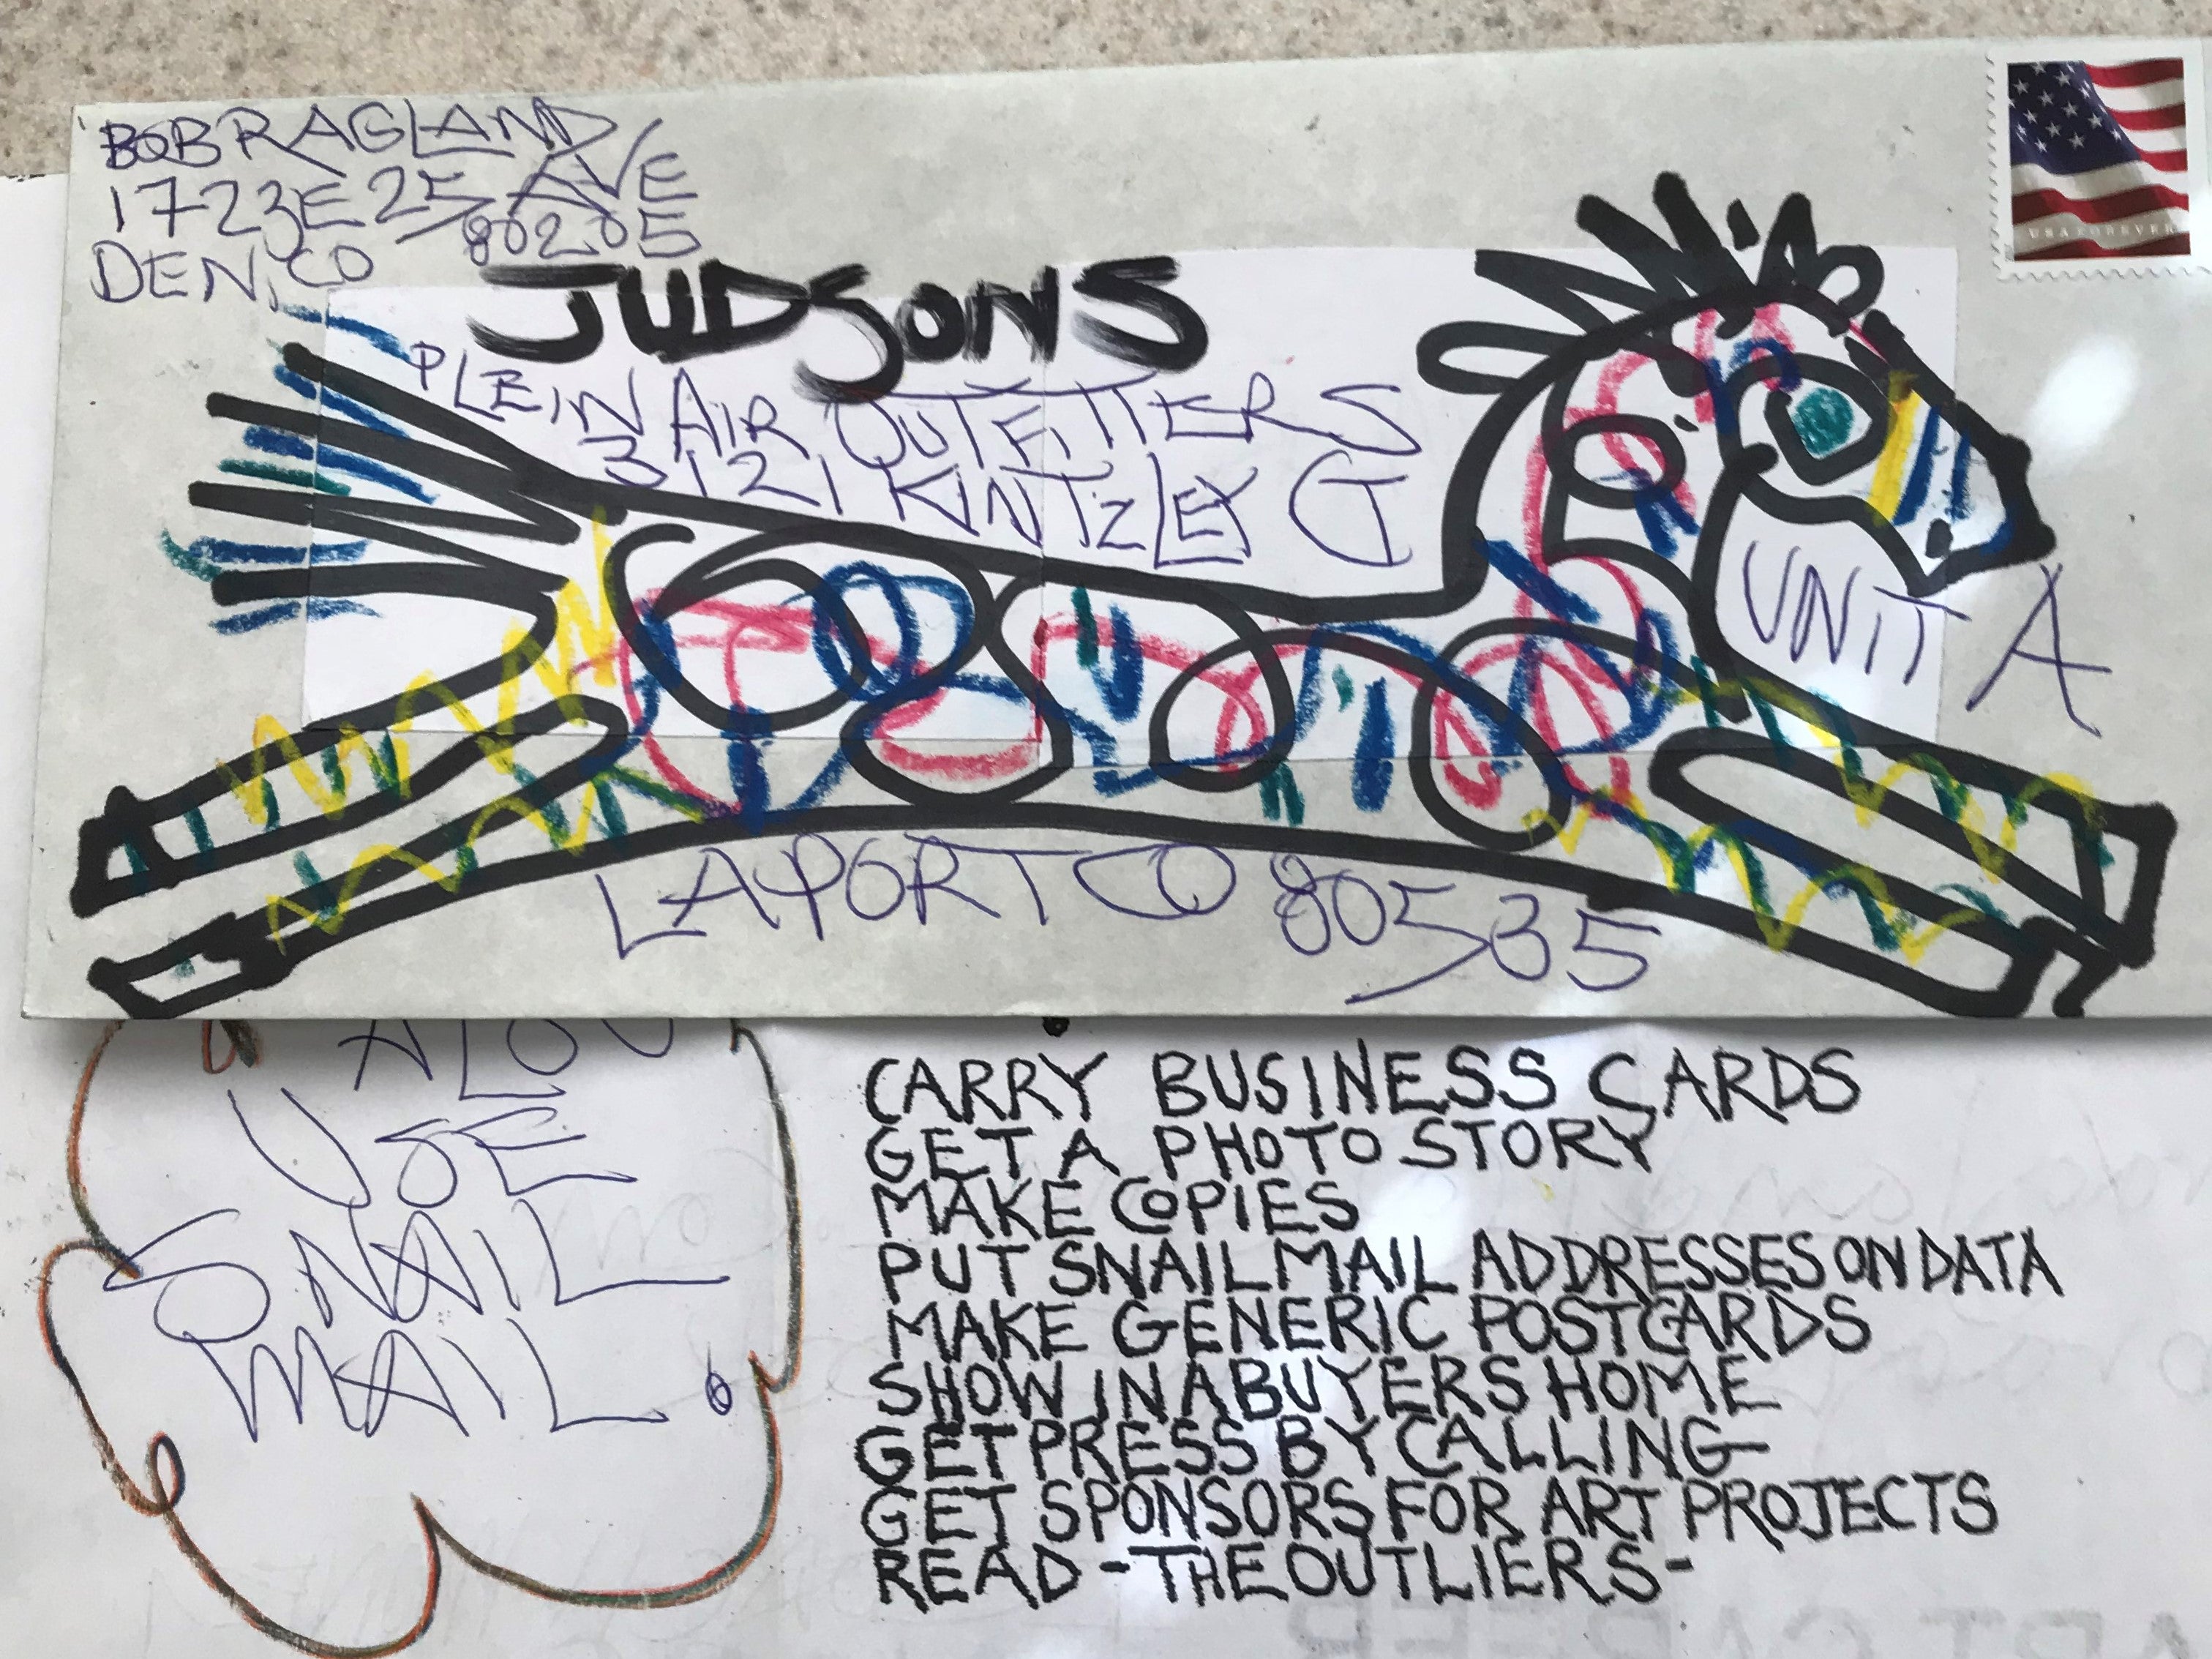 BOB RAGLAND
1723 E 25 AVE
DEN, CO 80205
USA FOREVER
JUDSONS
PLEIN AIR OUTFITTERS
3121 KINTZLEY CT
UNIT A
LAPORT CO 80535
USE
SNAIL
MAIL!
CARRY BUSINESS CARDS
GET A PHOTO STORY
MAKE COPIES
PUT SNAIL MAIL ADDRESSES ON DATA
MAKE GENERIC POSTCARDS
SHOW IN A BUYERS HOME
GET PRESS BY CALLING
GET SPONSORS FOR ART PROJECTS
READ -THE OUTLIERS-